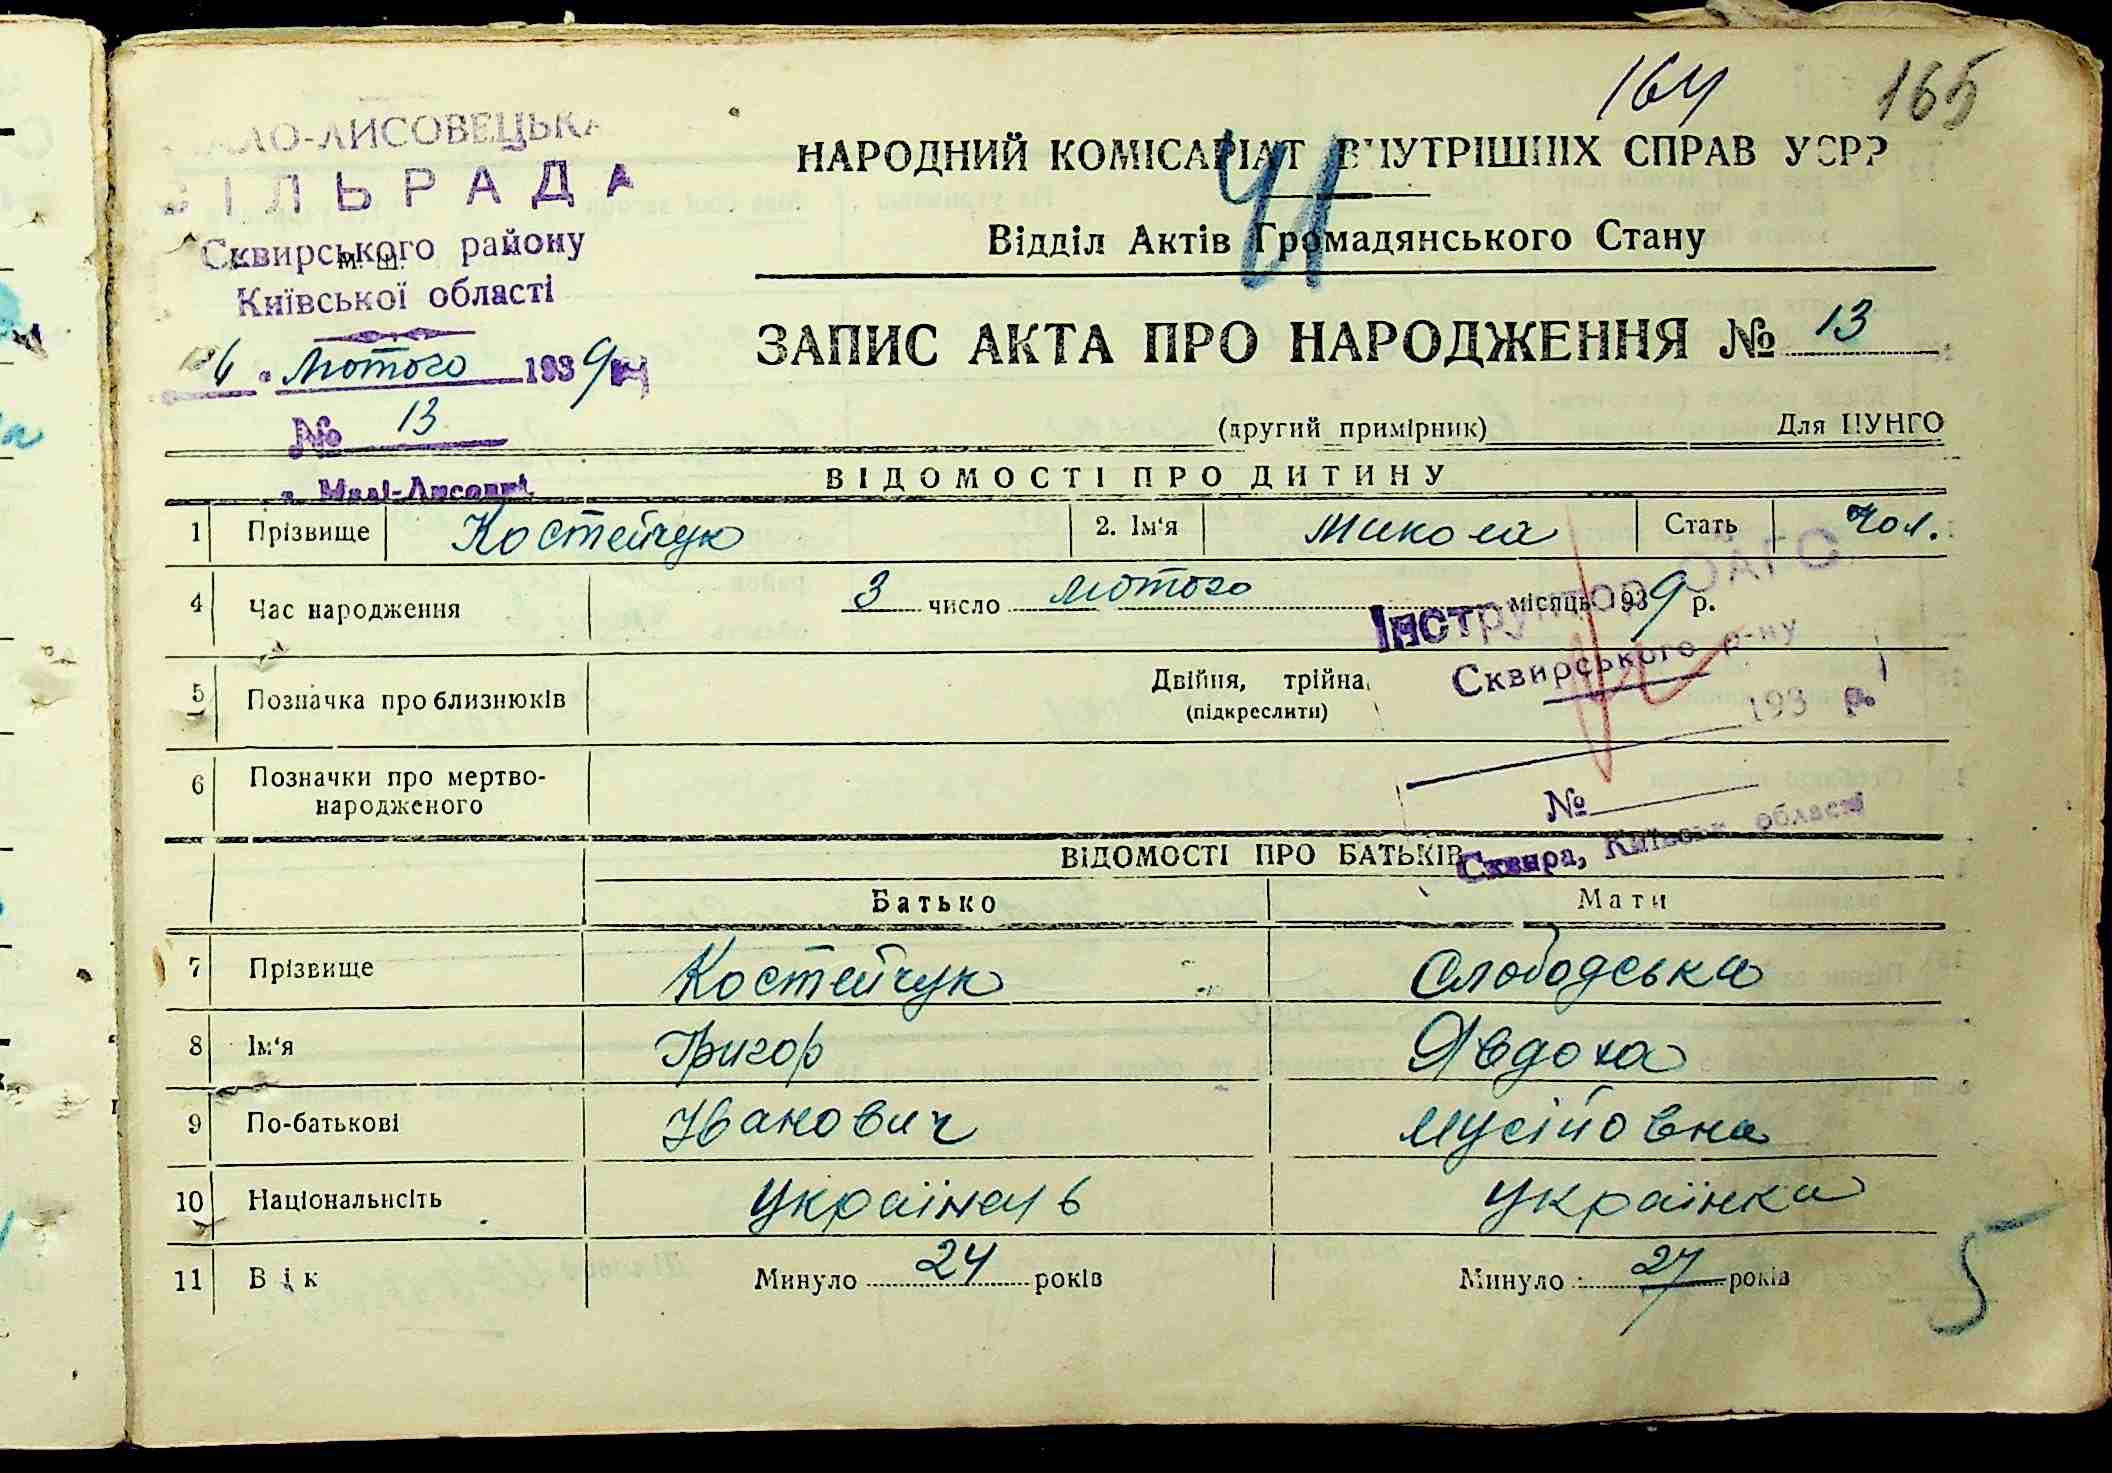 164 165
МАЛО-ЛИСОВЕЦЬКА
СІЛЬРАДА
Сквирського району
Київської області
м. ш.
лютого 1939 р.
№ 13
с. Малі-Лисовці
НАРОДНИЙ КОМІСАРІАТ ВНУТРІШНІХ СПРАВ УСРР
41
Відділ Актів Громадянського Стану
ЗАПИС АКТА ПРО НАРОДЖЕННЯ № 13
(другий примірник) Для ЦУНГО
ВІДОМОСТІ ПРО ДИТИНУ
1 Прізвище Костейчук 2. Ім'я Микола Стать Чол.
4 Час народження 3 число лютого місяць 1939 р.
5 Позначка про близнюків Двійня, трійня,
(підкреслити)
6 Позначки про мертво-
народженого
Інструктор ОАГС
Сквирського р-ну
193 р.
№
Сквира, Київськ. області
ВІДОМОСТІ ПРО БАТЬКІВ
Батько Мати
7 Прізвище Костейчук Слободська
8 Ім'я Григор Явдоха
9 По-батькові Іванович Мусійовна
10 Національність Українець Українка
11 Вік Минуло 24 років Минуло 27 років
5